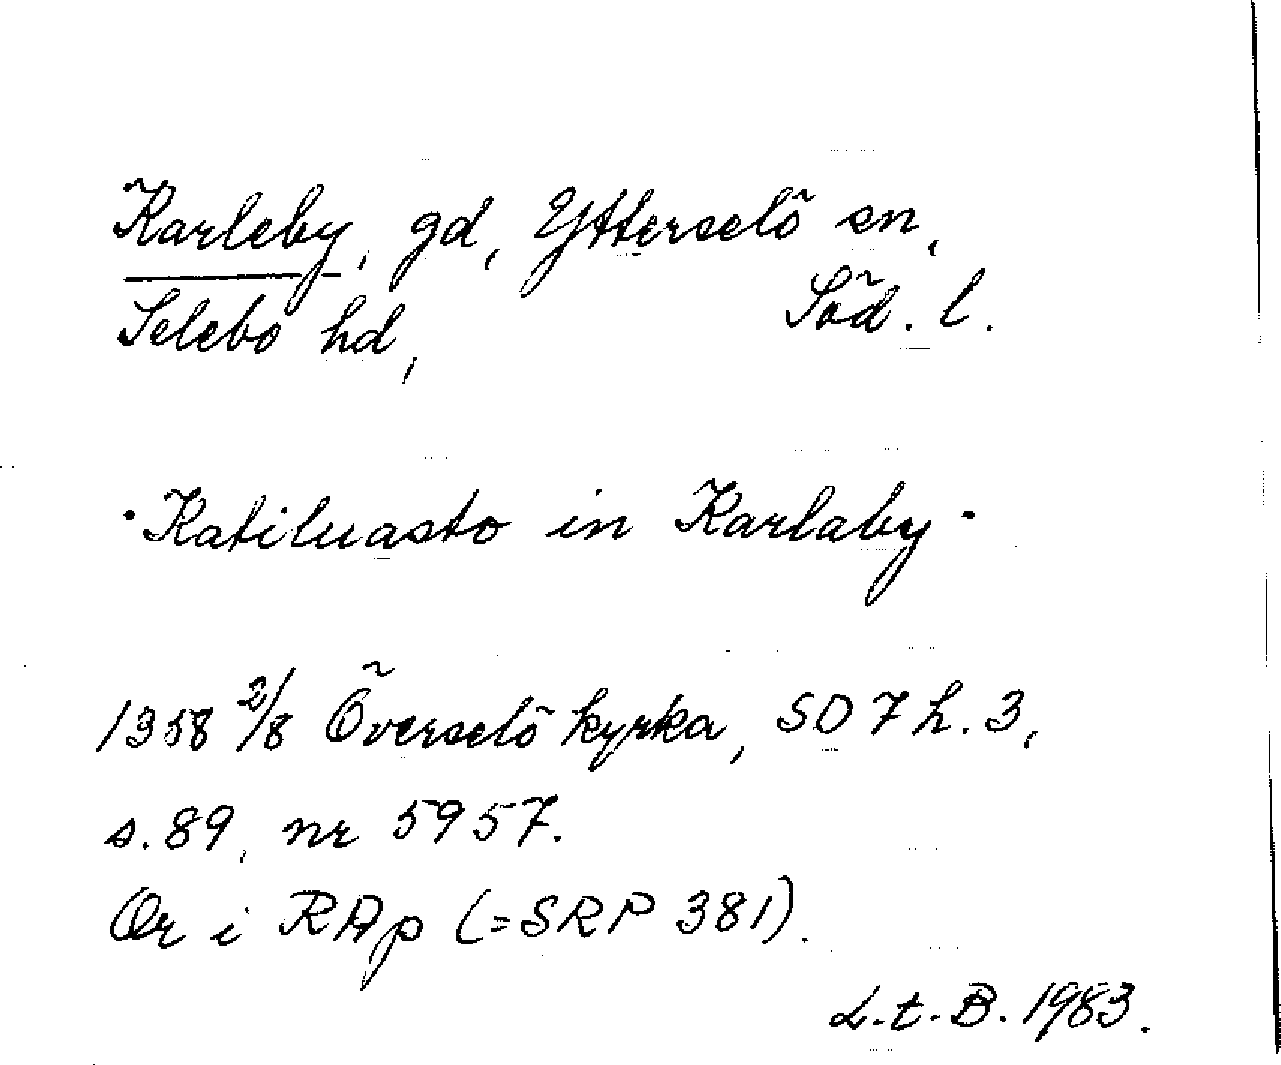 Karleby, gd, Ytterselö sn,
Selebo hd, Söd. l.
·Katiluasto in Karlaby·
1358 2/8 Överselö kyrka, SD 7 h. 3,
s. 89, nr 5957.
Or i RAp (=SRP 381).
L.t.B. 1983.